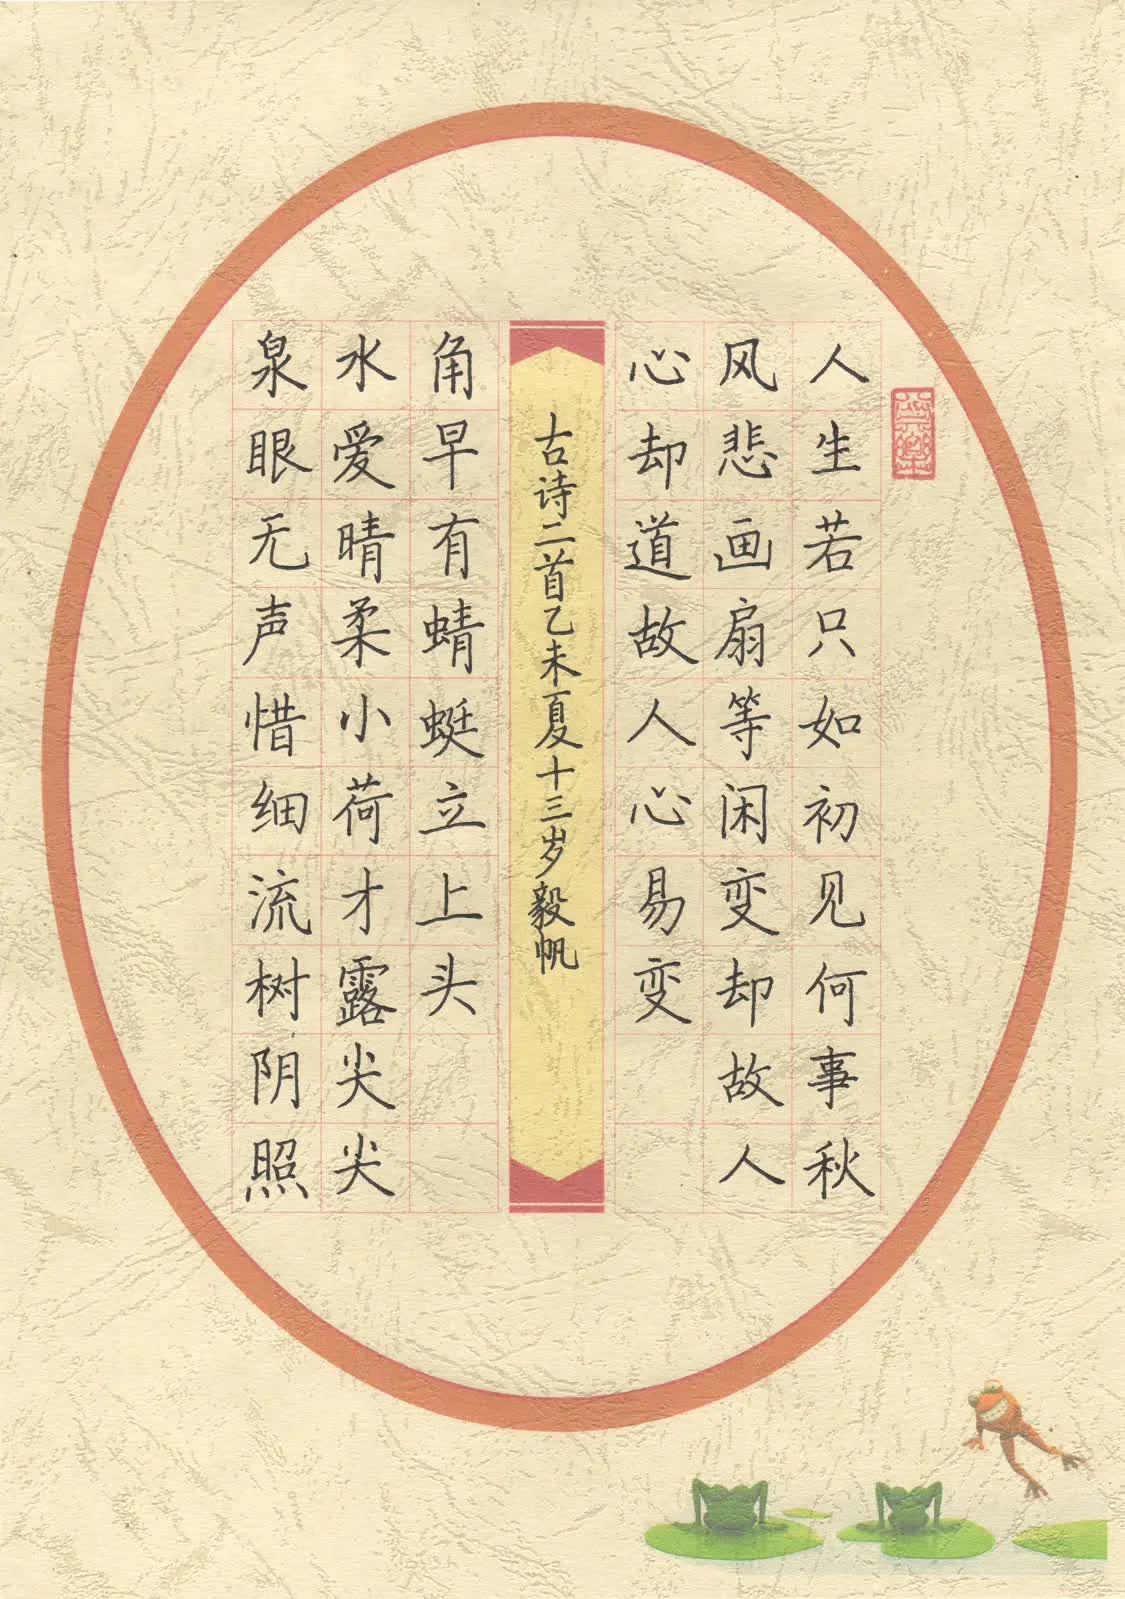 人生若只如初见何事秋
风悲画扇等闲变却故人
心却道故人心易变
古诗二首乙未夏十三岁毅帆
泉眼无声惜细流树阴照
水爱晴柔小荷才露尖尖
角早有蜻蜓立上头